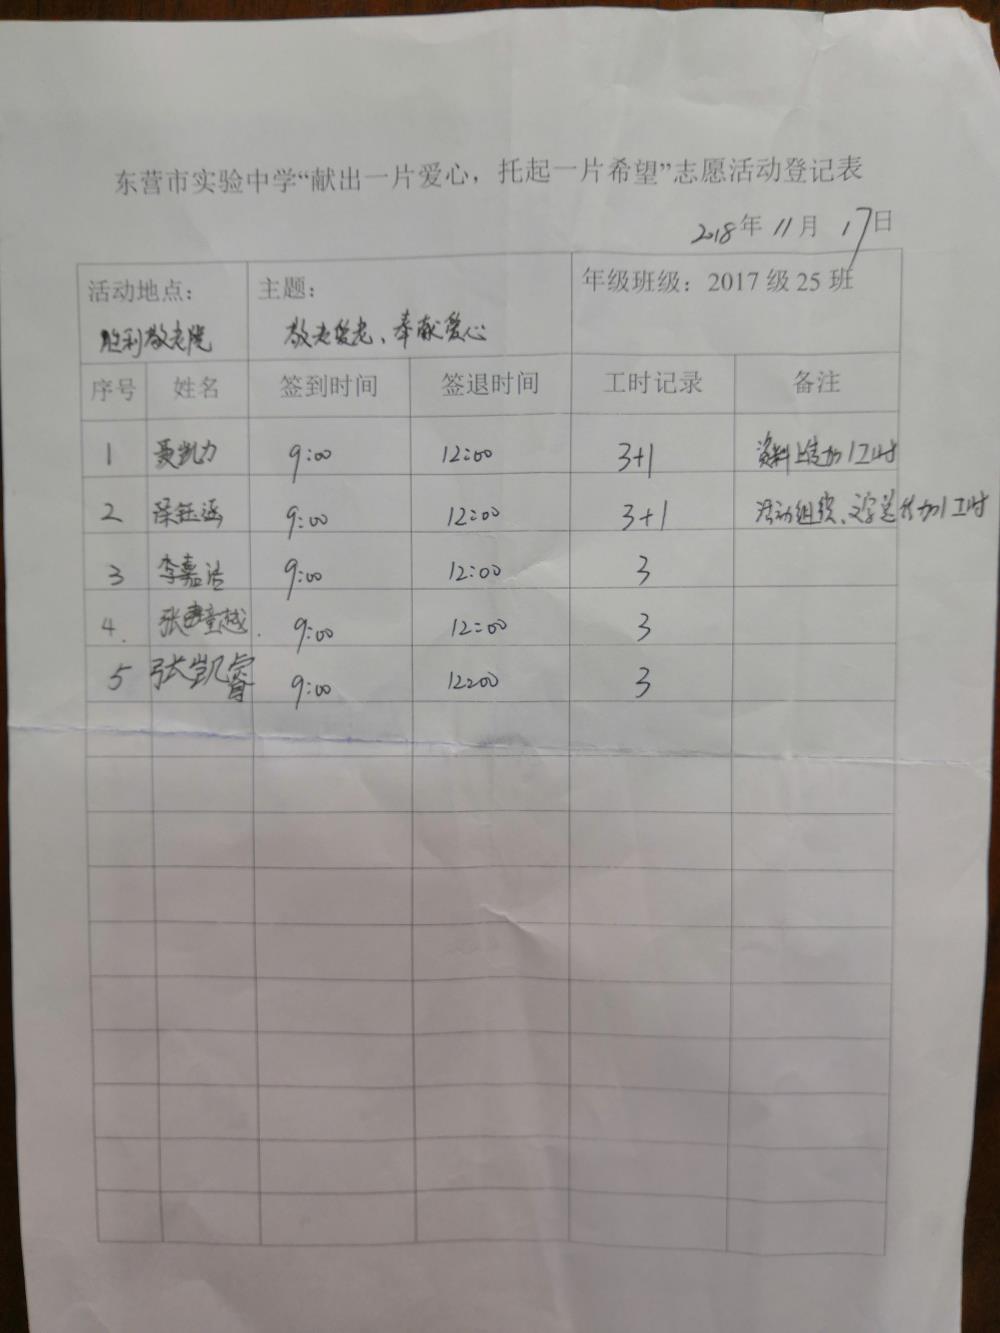 东营市实验中学“献出一片爱心，托起一片希望”志愿活动登记表
2018年 11月 17日
活动地点： 主题： 年级班级：2017级25班
胜利敬老院 敬老爱老、奉献爱心
序号 姓名 签到时间 签退时间 工时记录 备注
1 聂凯力 9:00 12:00 3+1 资料上传加1工时
2 钰涵 9:00 12:00 3+1 活动组织、文字 加1工时
3 李嘉浩 9:00 12:00 3
4. 张童越. 9:00 12:00 3
5 张凯睿 9:00 12:00 3